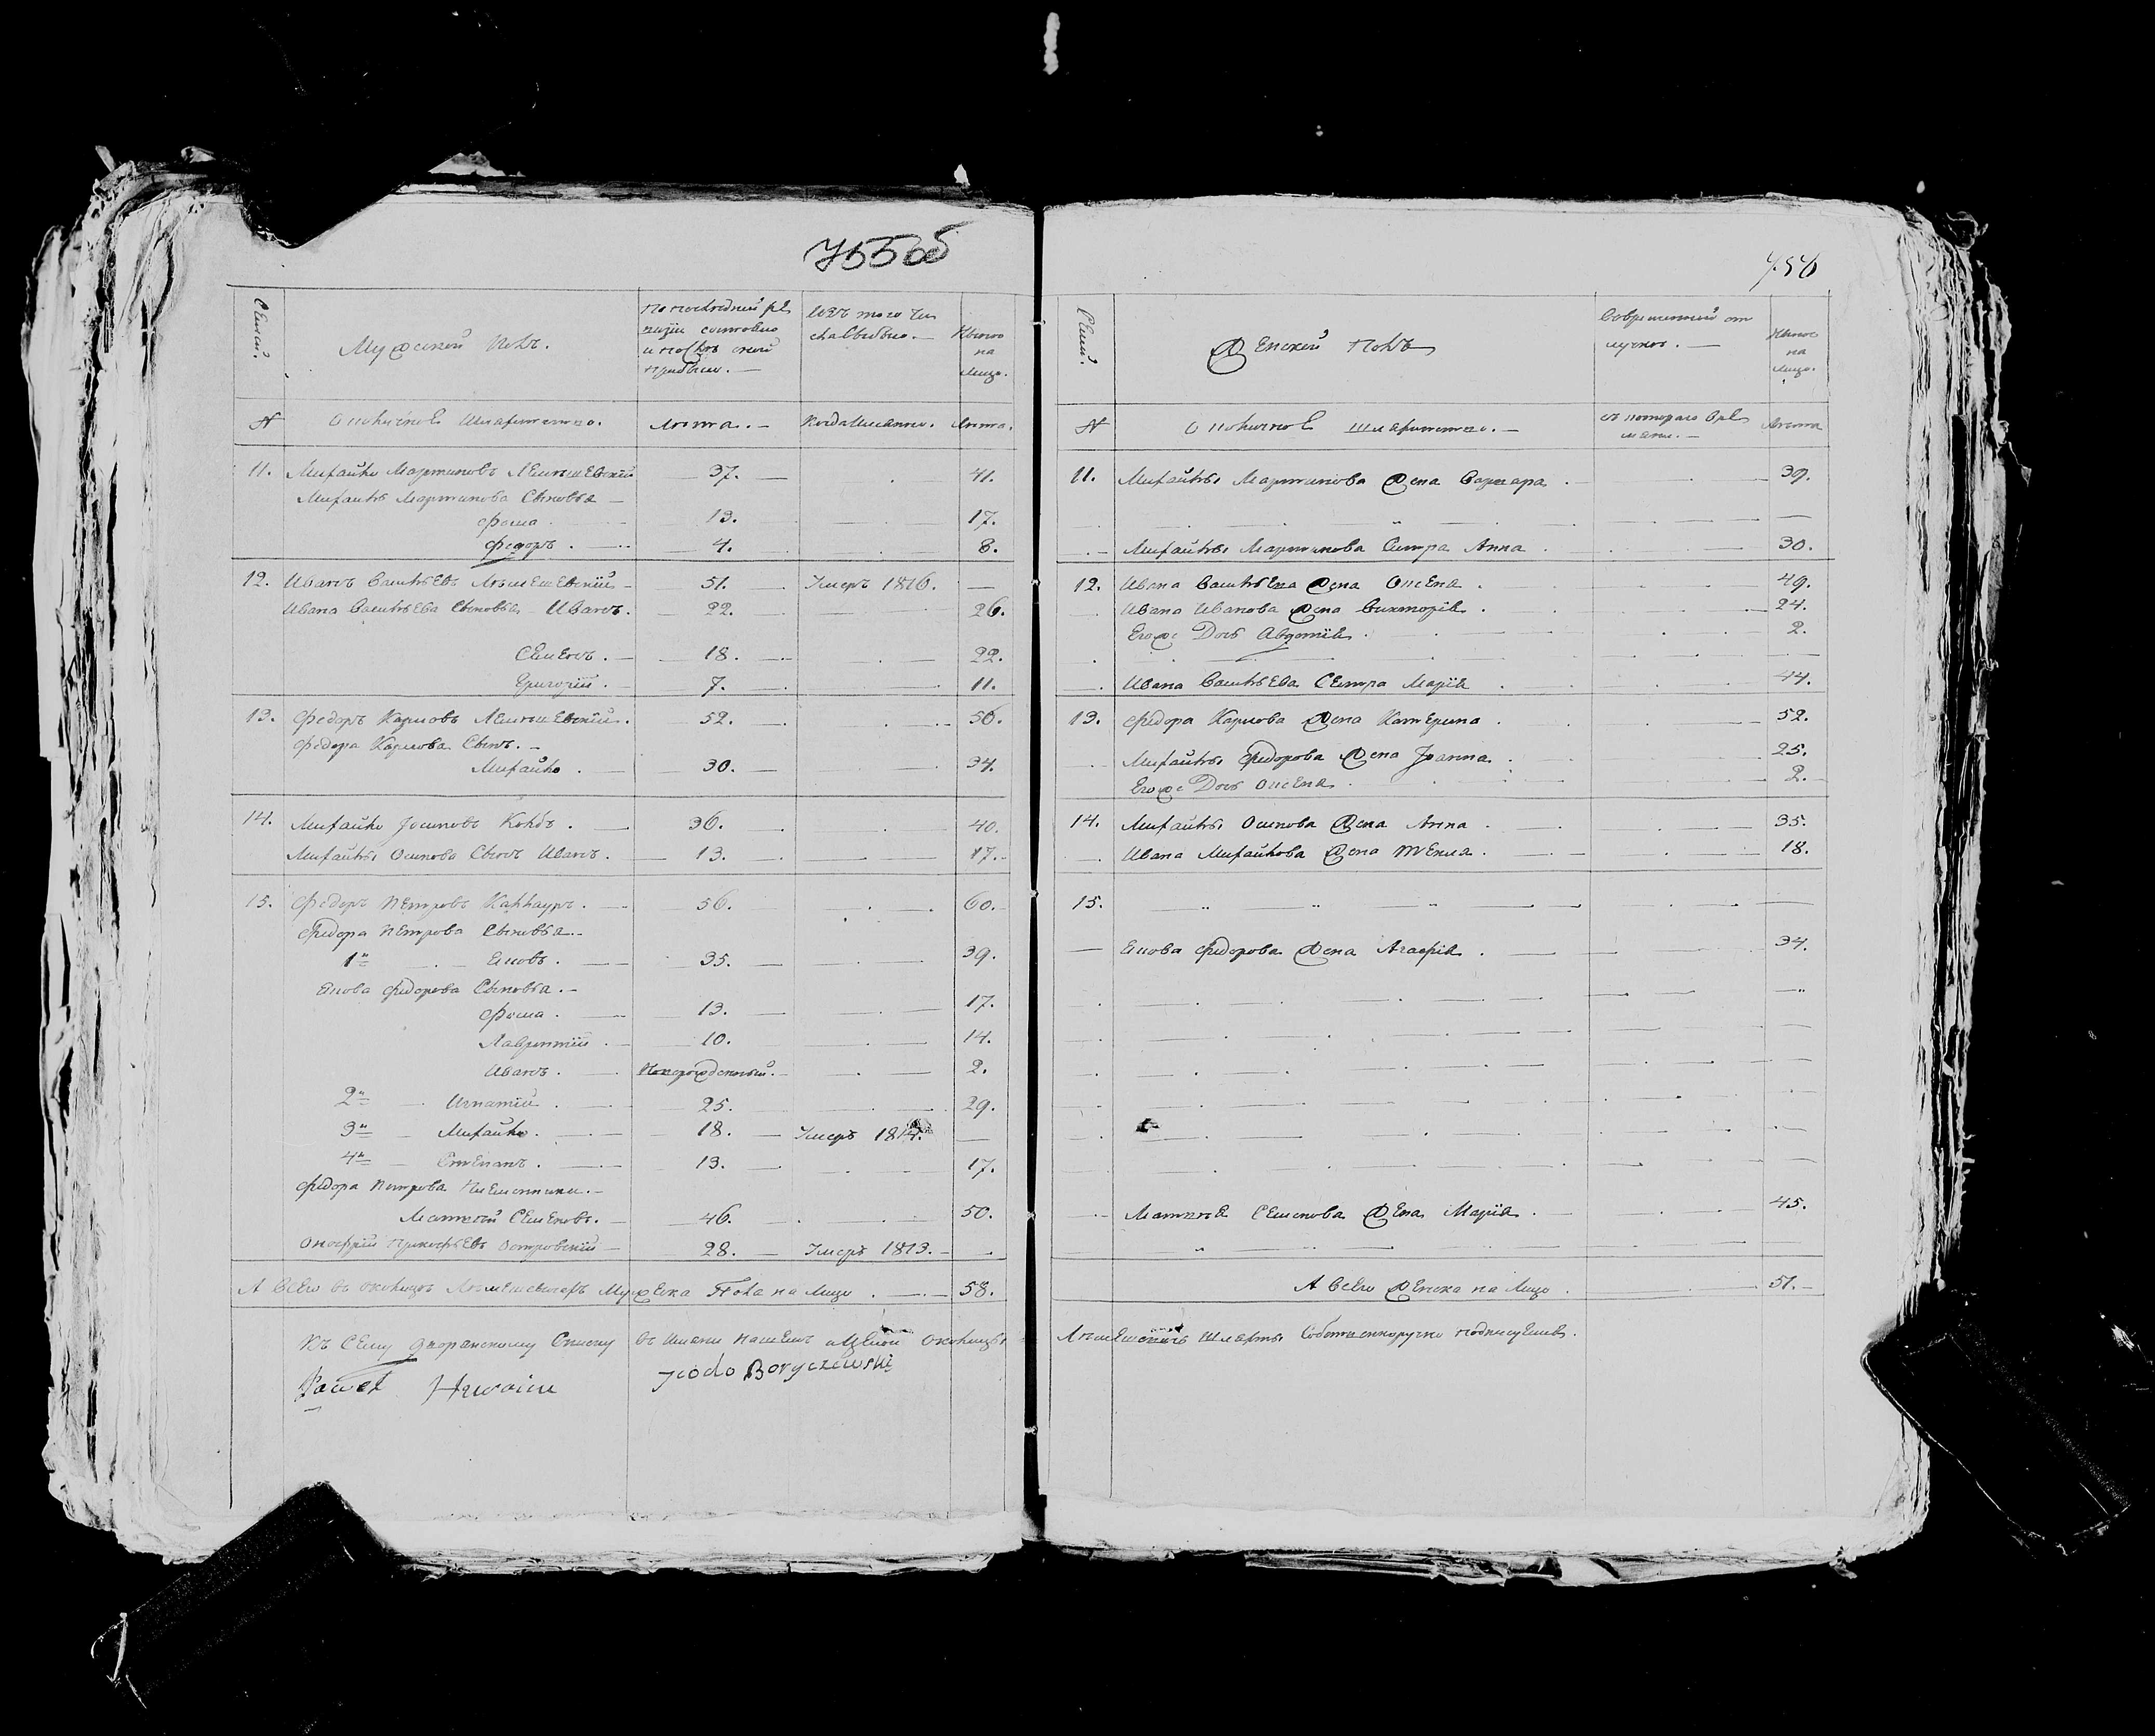 755 об
756
Семей.
Мужеской Полъ.
По последней ре
визіи состояло
и после оной
прибыло. —
Изъ того чи
сла выбыло. —
Ныне
на
лицо.
№
Околичное Шляхетство.
Лета. —
Когда Именно.
Лета.
11. Михайло Мартиновъ 37. — 41.
Михайлы Мартинова Сыновья —
Фома 13. — 17.
Федоръ. — 4. 8.
12. Иванъ Васильевъ 51. Умеръ 1816. —
Ивана Васильева Сыновья — Иванъ. 22. 26.
Семенъ. — 18. — 22.
Григорий. — 7. — 11.
13. Федоръ Карповъ 52. — 56.
Федора Карпова Сынъ. —
Михайло. — 30. — 34.
14. Михайло Іосиповъ 36. — 40.
Михайлы Осипова Сынъ Иванъ. — 13. — 17.
15. Федоръ Петровъ 56. 60.
Федора Петрова Сыновья. —
1й Яковъ. — 35. — 39.
Якова Федорова Сыновья. —
Фома. — 13. — 17.
Лаврентий — 10. — 14.
Иванъ. — Новорожденный. — 2.
2й — Игнатий. — 25. 29.
3й — Михайло. — 18. — Умеръ 1814. —
4й — Степанъ. — 13. — 17.
Федора Петрова Племянники. —
Матвей Семеновъ. — 46. 50.
Онофрий Прокофьевъ Островский — 28. — Умеръ 1813. —
А всего въ околице Мужеска Пола на Лицо. — 58.
Къ Сему дворянскому Списку въ имени нашемъ и целой околицы
Paweł
Boryczewski
Семей.
Женской Полъ
Во временной от
лучке. —
Ныне
на
лицо.
№
Околичное Шляхетство. —
съ котораго вре
мени. —
Лета
11. Михайлы Мартинова Жена Варвара. 39.
Михайлы Мартинова Сестра Анна. 30.
12. Ивана Васильева Жена 49.
Ивана Иванова Жена Викторія. 24.
Его же Дочь Авдотия. 2.
Ивана Васильева Сестра Марія 44.
13. Федора Карпова Жена Катерина. 52.
Михайлы Федорова Жена Іоанна. 25.
Его же Дочь 2.
14. Михайлы Осипова Жена Анна. 35.
Ивана Михайлова Жена Текля. 18.
15.
Якова Федорова Жена Агафія. 34.
Матвея Семенова Жена Марія. 45.
А всего Женска на Лицо 51. —
Шляхты Собственноручно подписуемся.